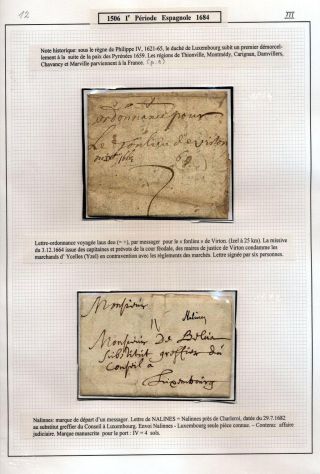 12
1506 Iᵉ Période Espagnole 1684
III
Note historique: sous le règne de Philippe IV, 1621-65, le duché de Luxembourg subit un premier démorcel-
lement à la suite de la paix des Pyrénées 1659. Les régions de Thionville, Montmédy, Carignan, Damvillers,
Chavancy et Marville parviennent à la France.
ordonnance pour
Le de virton
Lettre-ordonnance voyagée laus deo (= =), par messager pour le « fonlieu » de Virton. (Izel à 25 km). La missive du
3.12.1664 issue des capitaines et prévots de la cour féodale, des maires de justice de Virton condamne les
marchands d' Ycelles (Yzel) en contravention avec les règlements des marchés. Lettre signée par six personnes.
Monsieur
Nalines
Monsieur De
Substitut greffier du
Conseil à
Luxembourg
Nalinnes: marque de départ d'un messager. Lettre de NALINES = Nalinnes près de Charleroi, datée du 29.7.1682
au substitut greffier du Conseil à Luxembourg. Envoi Nalinnes - Luxembourg seule pièce connue. – Contenu: affaire
judiciaire. Marque manuscrite pour le port : IV = 4 sols.